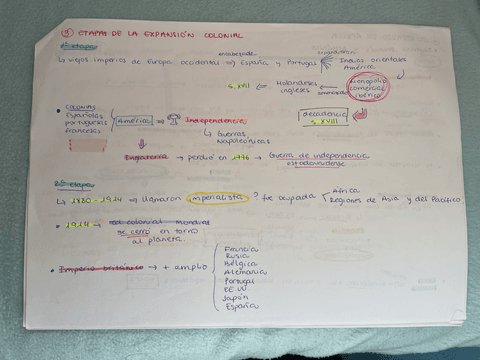 ③ ETAPAS DE LA EXPANSIÓN COLONIAL
1ª etapa
↳ viejos imperios de Europa occidental ⇒ España y Portugal
Indias orientales
América
Monopolio
comercial
ibérico
Holandeses
ingleses
S. XVII
decadencia
S. XVIII
• COLONIAS
Españolas
Portuguesas
Francesas
América
Independencia
↳ Guerras
Napoleónicas
Inglaterra → perdió en 1776 → Guerra de independencia
estadounidense
2ª etapa
↳ 1880 - 1914 ⇒ llamaron imperialista ? fue ocupada
África
Regiones de Asia y del Pacífico
• 1914 → red colonial mundial
se cerró en torno
al planeta.
• Imperio británico → + amplio
Francia
Rusia
Bélgica
Alemania
Portugal
EE.UU
Japón
España